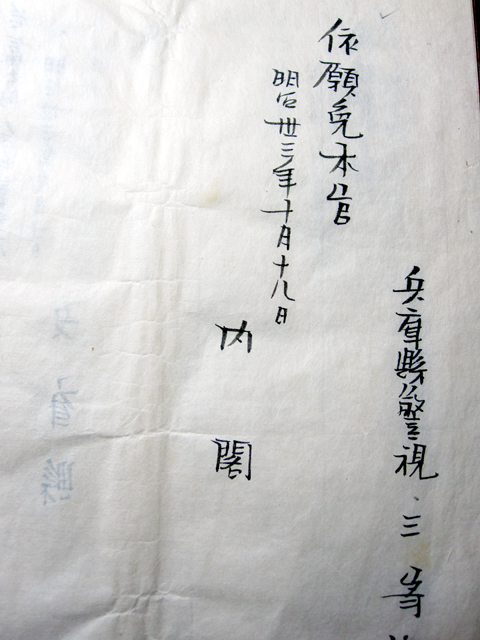 兵庫縣警視 三
依願免本官
明治卅三年十月十八日
内閣
兵庫縣